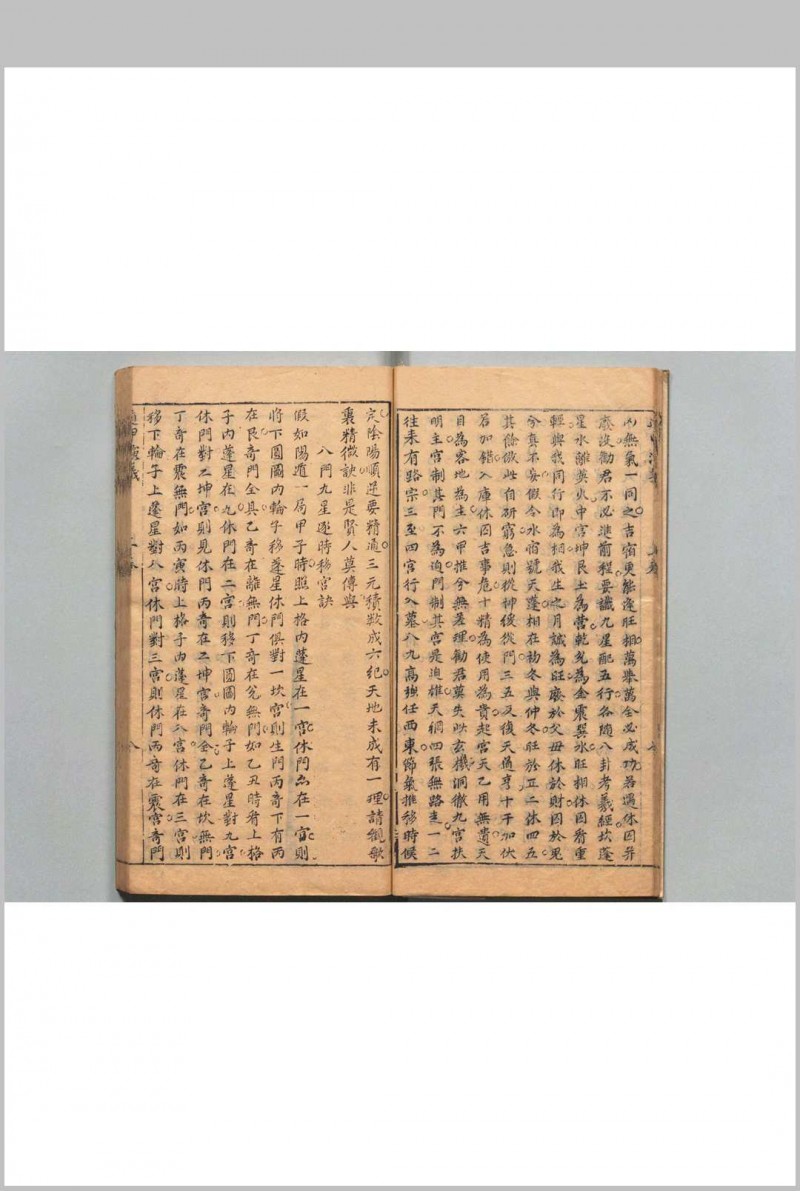 凶無氣一同之吉宿更能逢旺相萬舉萬全必成功若遇休囚并
廢沒勸君不必進前程要識九星配五行各隨八卦考羲經坎蓬
星水離英火中宮坤艮土為營乾兌為金震巽木旺相休囚看重
輕與我同行即為相我生之月誠為旺廢於父母休於財囚於鬼
分真不妄假令水宿號天蓬相在初冬與仲冬旺於正二休四五
其餘倣此自研窮急則從神緩從門三五反復天道亨十干加伏
若加錯入庫休囚吉事危十精為使用為貴起宮天乙用無遺天
目為客地為主六甲推兮無差理勸君莫失此玄機洞徹九宮扶
明主宮制其門不為迫門制其宮是迫雄天網四張無路走一二
往來有路宗三至四宮行入墓八九高強任西東節氣推移時候
定陰陽順逆要精通三元積數成六紀天地未成有一理請觀歌
裏精微訣非是賢人莫傳與
八門九星逐時移宮訣
假如陽遁一局甲子時照上格內蓬星在一宮休門亦在一宮則
將下圓圖內輪子移蓬星休門俱對一坎宮則生門丙奇下有丙
在艮奇門全具乙奇在離無門丁奇在兌無門如乙丑時看上格
子內蓬星在九休門在二宮則移下圓圖內輪子上蓬星對九宮
休門對二坤宮則見休門丙奇在二坤宮奇門全乙奇在坎無門
丁奇在震無門如丙寅時上格子內蓬星在八宮休門在三宮則
移下輪子上蓬星對八宮休門對三宮則休門丙奇在震宮奇門